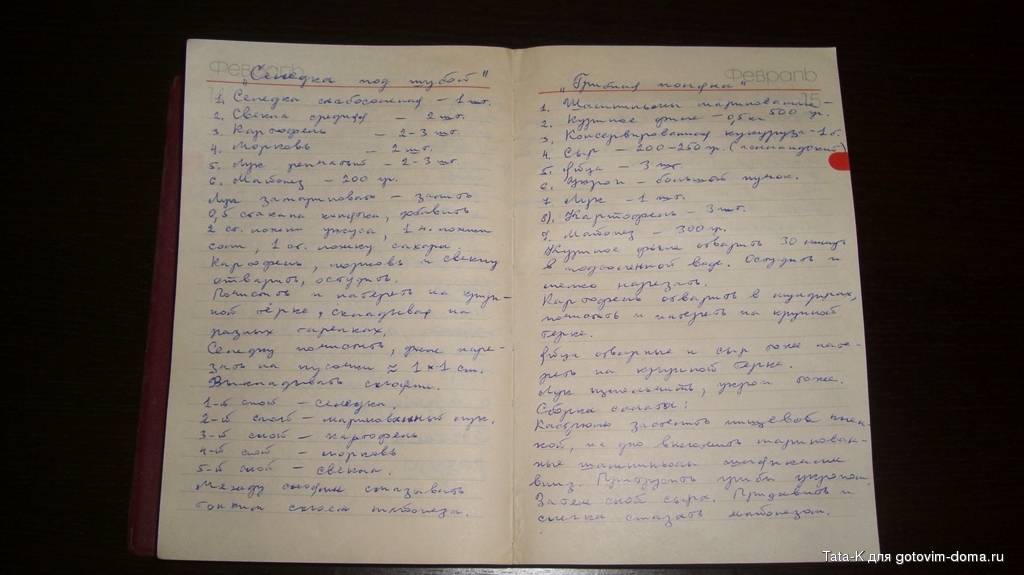 Февраль
"Селедка под шубой"
1. Селедка слабосоленая – 1 шт.
2. Свекла средняя – 2 шт.
3. Картофель – 2-3 шт.
4. Морковь – 2 шт.
5. Лук репчатый – 2-3 шт.
6. Майонез – 200 гр.
Лук замариновать – залить
0,5 стакана кипятка, добавить
2 ст. ложки уксуса, 1 ч. ложки
соли, 1 ст. ложку сахара.
Картофель, морковь и свеклу
отварить, остудить.
Почистить и натереть на круп-
ной тёрке, складывая на
разных тарелках.
Селедку почистить, филе наре-
зать на кусочки ≈ 1×1 см.
Выкладывать слоями.
1-й слой – селедка.
2-й слой – маринованный лук.
3-й слой – картофель
4-й слой – морковь
5-й слой – свекла.
Между слоями смазывать
тонким слоем майонеза.
Февраль
15
"Грибная поляна"
1. Шампиньоны маринованные –
2. Куриное филе – 0,5 кг 500 гр.
3. Консервированная кукуруза – 1 б.
4. Сыр – 200-250 гр. (голландский)
5. Яйца – 3 шт.
6. Укроп – большой пучок.
7. Лук – 1 шт.
8). Картофель – 3 шт.
9. Майонез – 300 гр.
Куриное филе отварить 30 минут
в подсоленной воде. Остудить и
мелко нарезать.
Картофель отварить в мундирах,
почистить и натереть на крупной
терке.
Яйца отварные и сыр тоже нате-
реть на крупной терке.
Лук измельчить, укроп тоже.
Сборка салата:
Кастрюлю застелить пищевой плен-
кой, на дно выложить маринован-
ные шампиньоны шляпками
вниз. Притрусить грибы укропом.
Затем слой сыра. Придавить и
слегка смазать майонезом.
Tata-K для gotovim-doma.ru